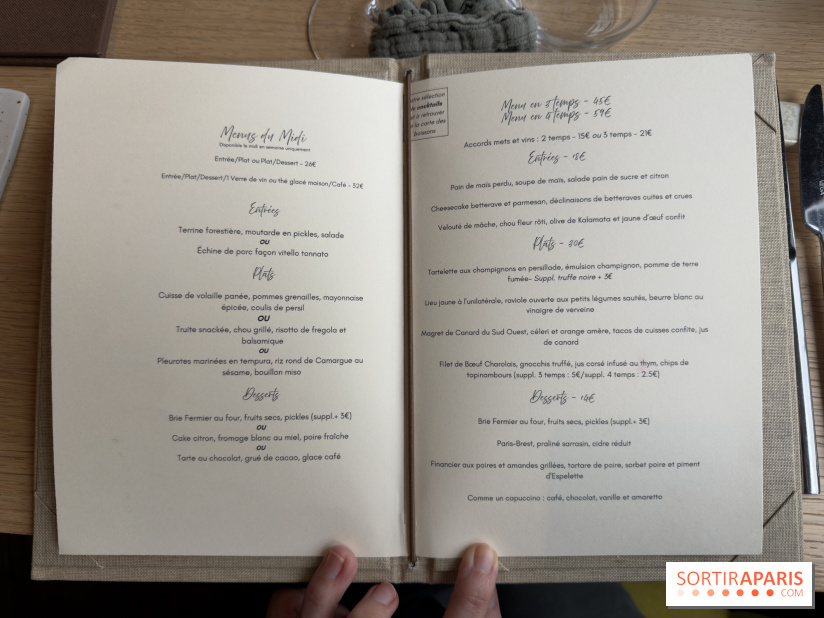 Menus du Midi
Disponible le midi en semaine uniquement
Entrée/Plat ou Plat/Dessert - 26€
Entrée/Plat/Dessert/1 Verre de vin ou thé glacé maison/Café - 32€
Entrées
Terrine forestière, moutarde en pickles, salade
OU
Échine de porc façon vitello tonnato
Plats
Cuisse de volaille panée, pommes grenailles, mayonnaise
épicée, coulis de persil
OU
Truite snackée, chou grillé, risotto de fregola et
balsamique
OU
Pleurotes marinées en tempura, riz rond de Camargue au
sésame, bouillon miso
Desserts
Brie Fermier au four, fruits secs, pickles (suppl.+ 3€)
OU
Cake citron, fromage blanc au miel, poire fraîche
OU
Tarte au chocolat, grué de cacao, glace café
sélection
cocktails
à retrouver
la carte des
boissons
Menu en 3 temps - 45€
Menu en 4 temps - 59€
Accords mets et vins : 2 temps - 15€ ou 3 temps - 21€
Entrées - 15€
Pain de maïs perdu, soupe de maïs, salade pain de sucre et citron
Cheesecake betterave et parmesan, déclinaisons de betteraves cuites et crues
Velouté de mâche, chou fleur rôti, olive de Kalamata et jaune d'œuf confit
Plats - 30€
Tartelette aux champignons en persillade, émulsion champignon, pomme de terre
fumée- Suppl. truffe noire + 3€
Lieu jaune à l'unilatérale, raviole ouverte aux petits légumes sautés, beurre blanc au
vinaigre de verveine
Magret de Canard du Sud Ouest, céleri et orange amère, tacos de cuisses confite, jus
de canard
Filet de Bœuf Charolais, gnocchis truffé, jus corsé infusé au thym, chips de
topinambours (suppl. 3 temps : 5€/suppl. 4 temps : 2.5€)
Desserts - 14€
Brie Fermier au four, fruits secs, pickles (suppl.+ 3€)
Paris-Brest, praliné sarrasin, cidre réduit
Financier aux poires et amandes grillées, tartare de poire, sorbet poire et piment
d'Espelette
Comme un capuccino : café, chocolat, vanille et amaretto
SORTIRAPARIS
.COM